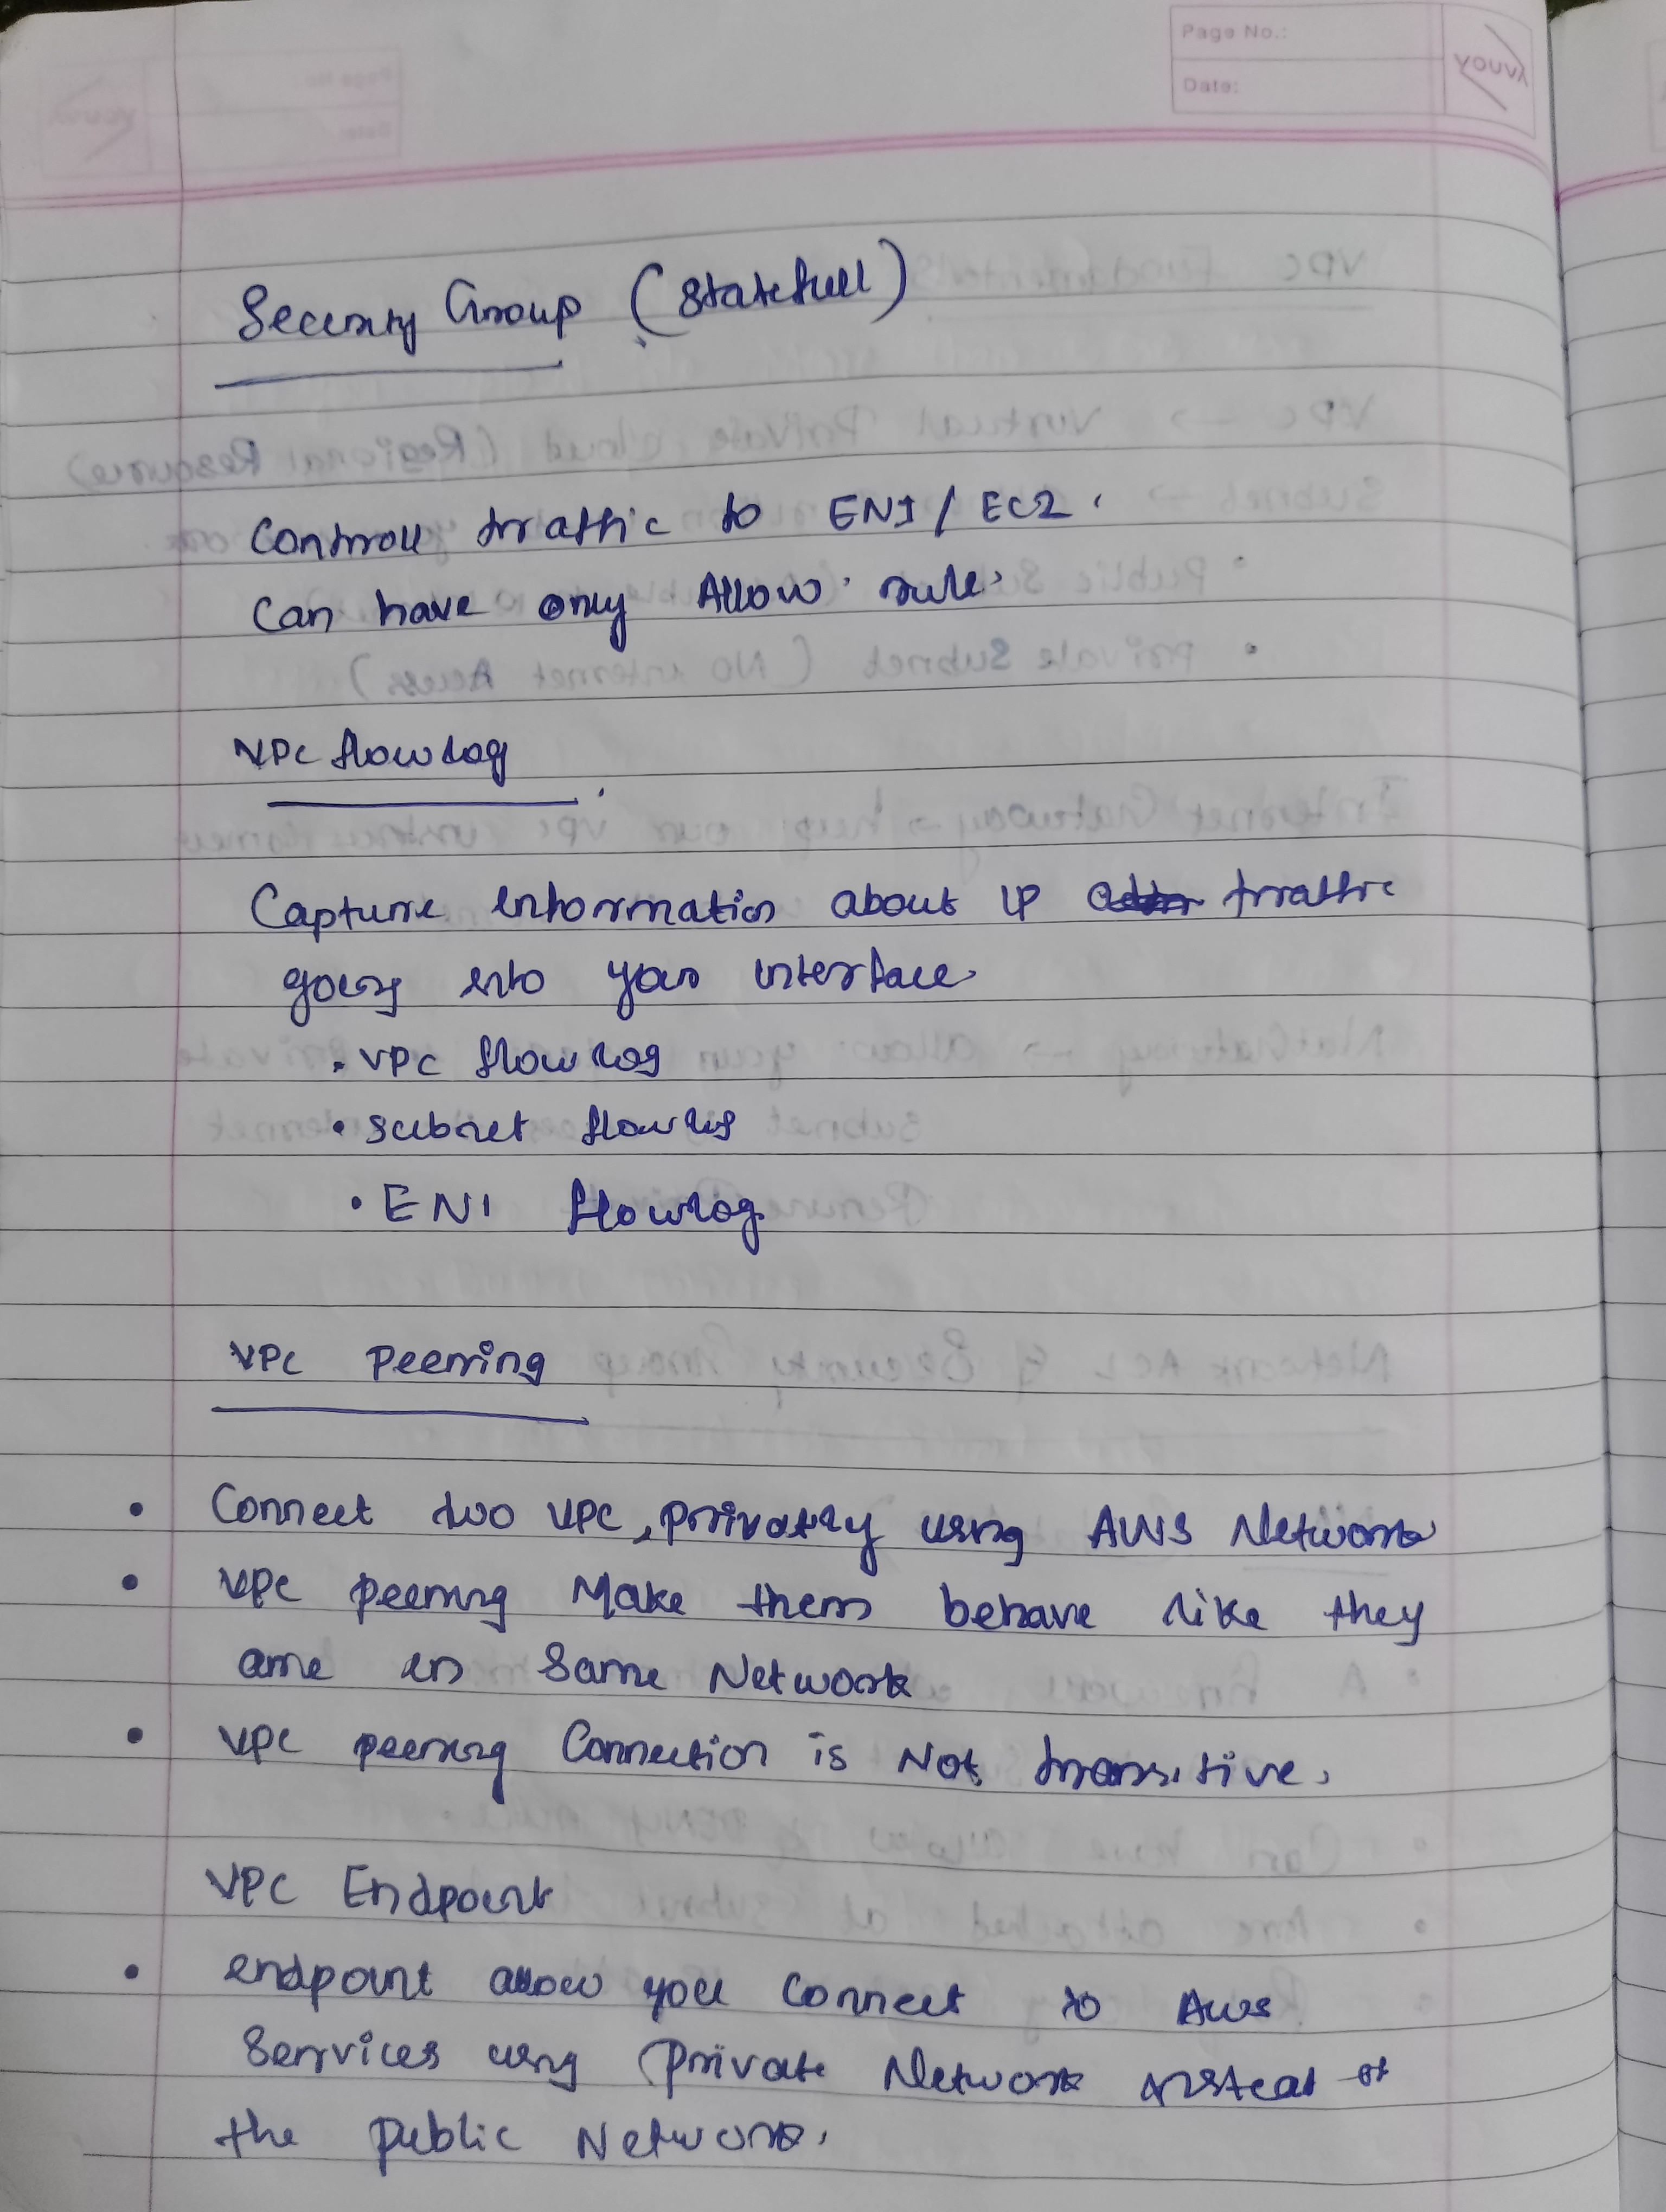 Page No.:
Date:
YOUVA
Security Group (Statefull)
Controll traffic to ENI / EC2.
Can have only Allow rule.
VPC flow log
Capture information about IP traffic
going into your interface
• VPC flow log
• subnet flow log
• ENI flowlog
VPC Peering
• Connect two VPC, privatly using AWS Network
• VPC peering Make them behave like they
are in Same Network
• VPC peering Connection is Not transitive.
VPC Endpoint
• endpoint allow you Connect to AWS
Services using private Network instead of
the public Network.